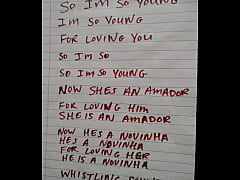 SO IM SO YOUNG
IM SO YOUNG
FOR LOVING YOU
SO IM SO
SO IM SO YOUNG
NOW SHES AN AMADOR
FOR LOVING HIM
SHE IS AN AMADOR
NOW HES A NOVINHA
HES A NOVINHA
FOR LOVING HER
HE IS A NOVINHA
WHISTLING